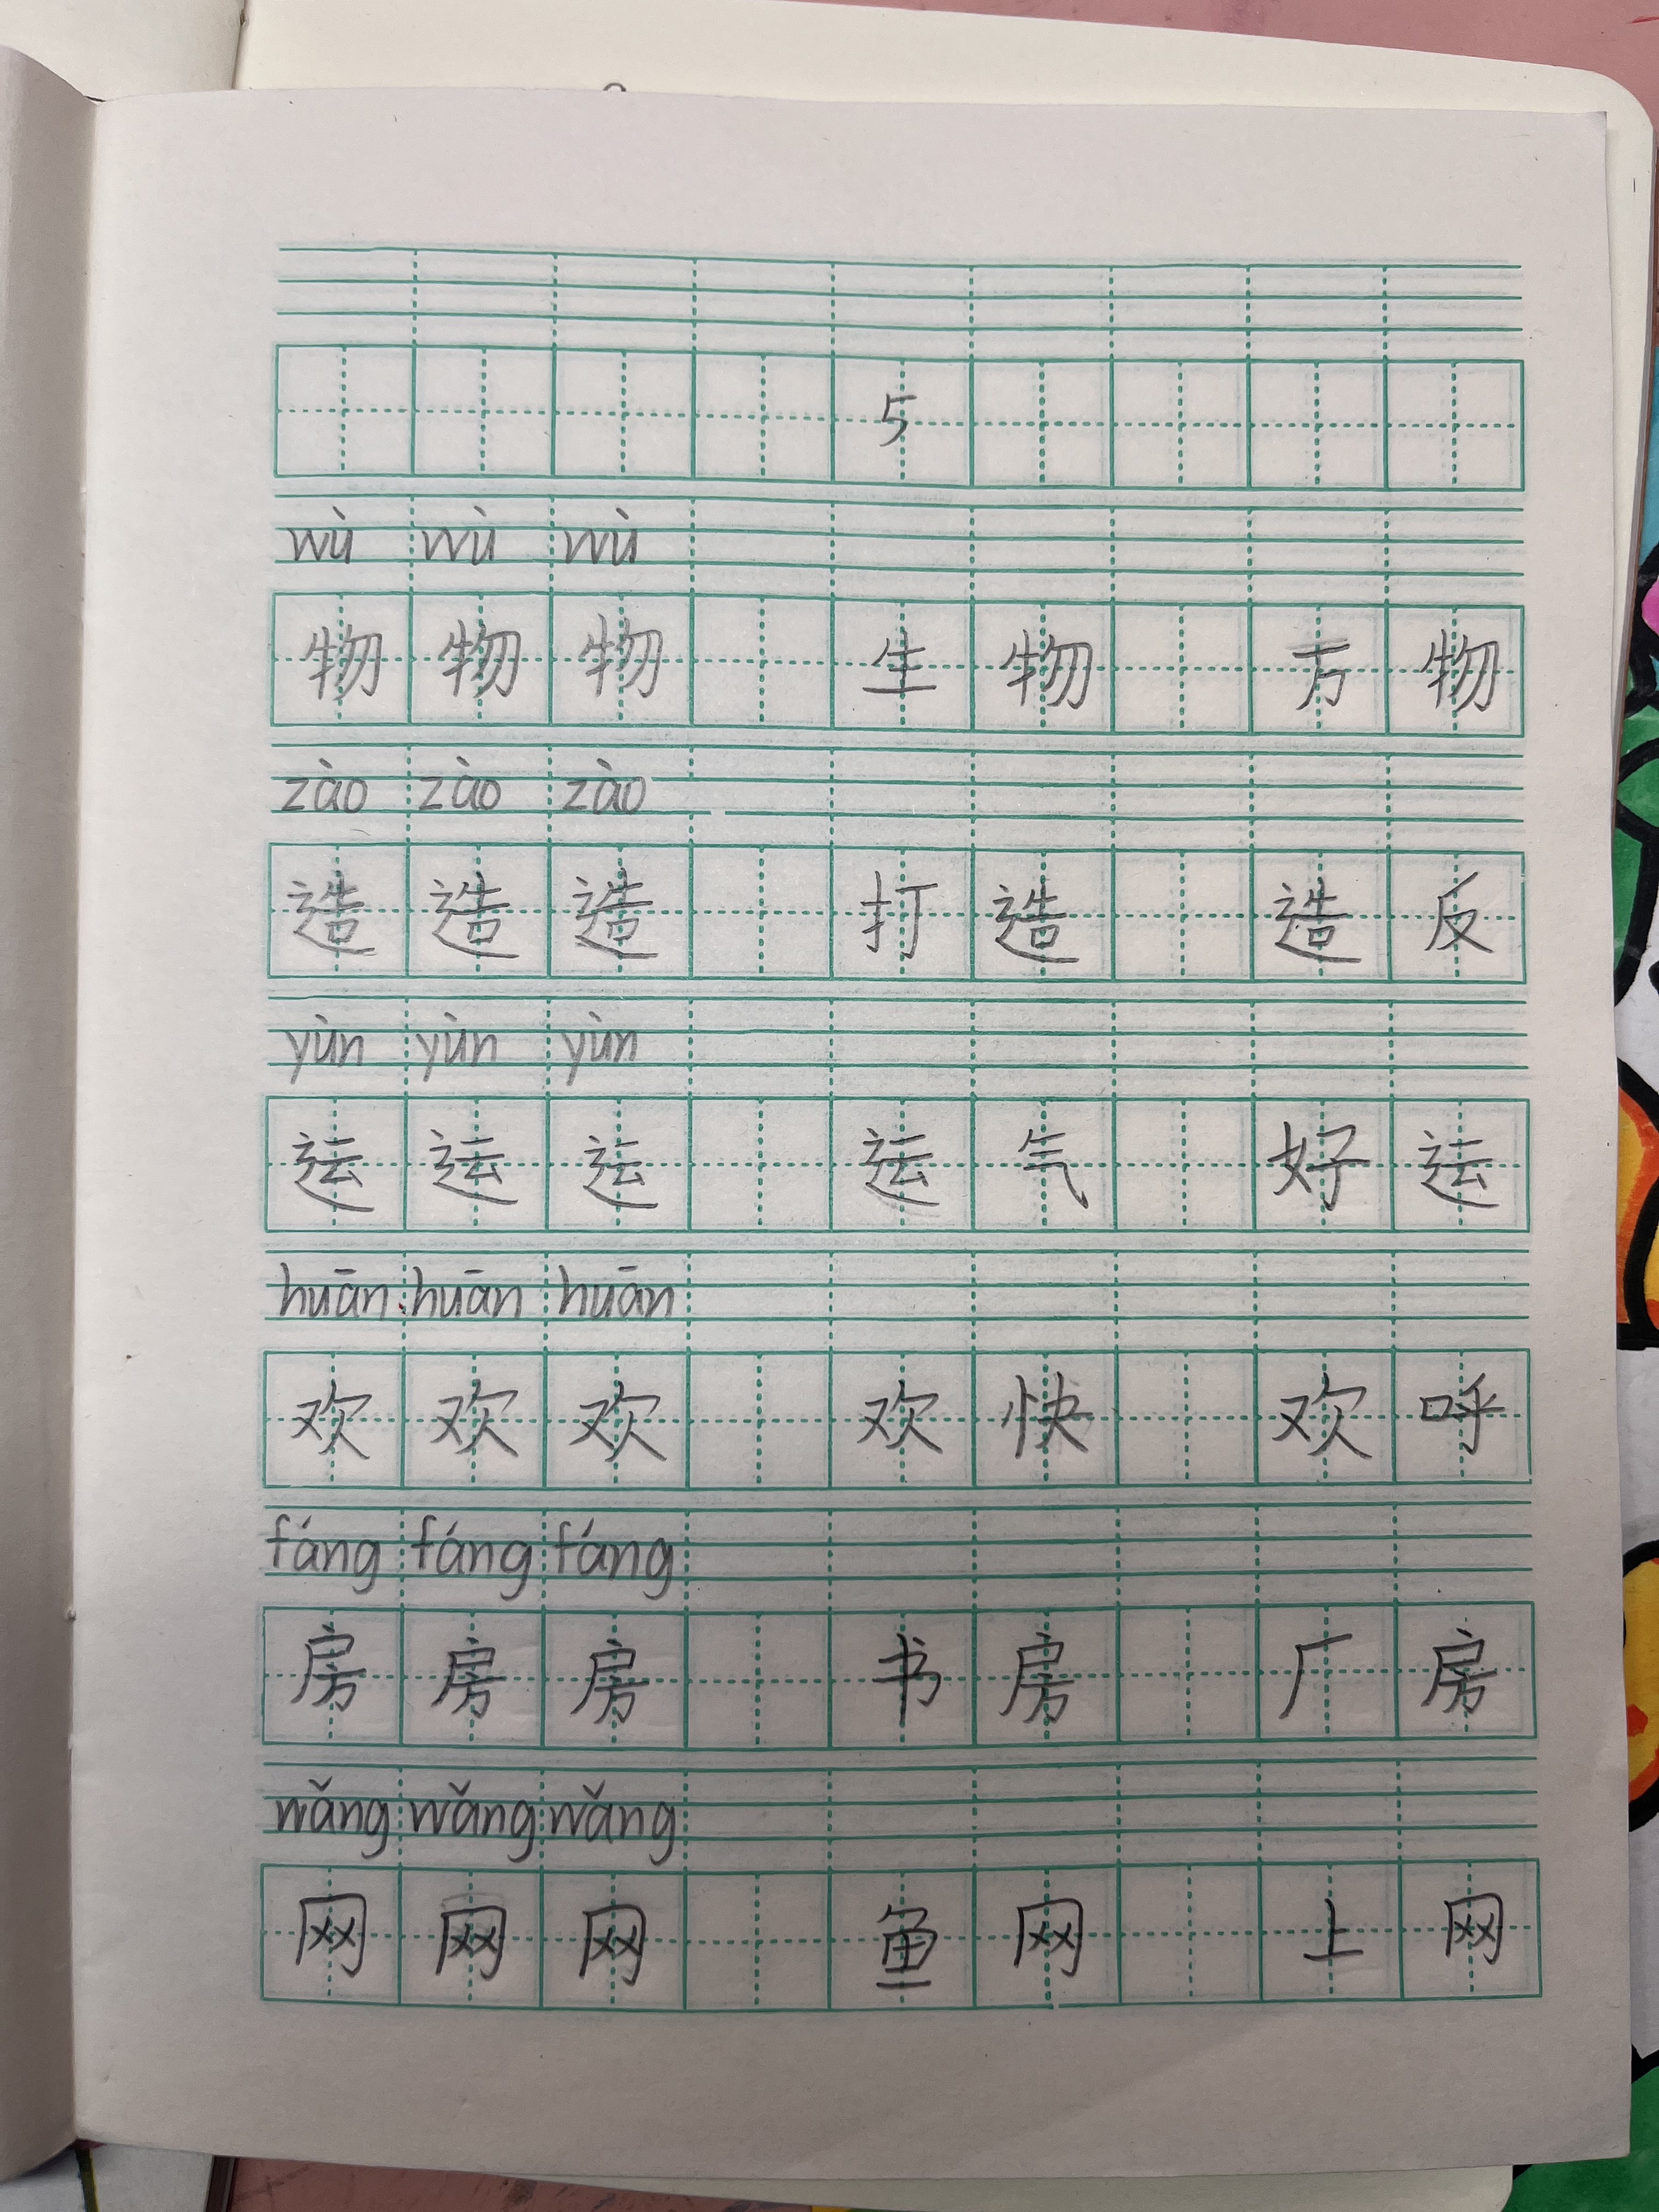 5
wù wù wù
物 物 物 生 物 万 物
zào zào zào
造 造 造 打 造 造 反
yùn yùn yùn
运 运 运 运 气 好 运
huān huān huān
欢 欢 欢 欢 快 欢 呼
fáng fáng fáng
房 房 房 书 房 厂 房
wǎng wǎng wǎng
网 网 网 鱼 网 上 网